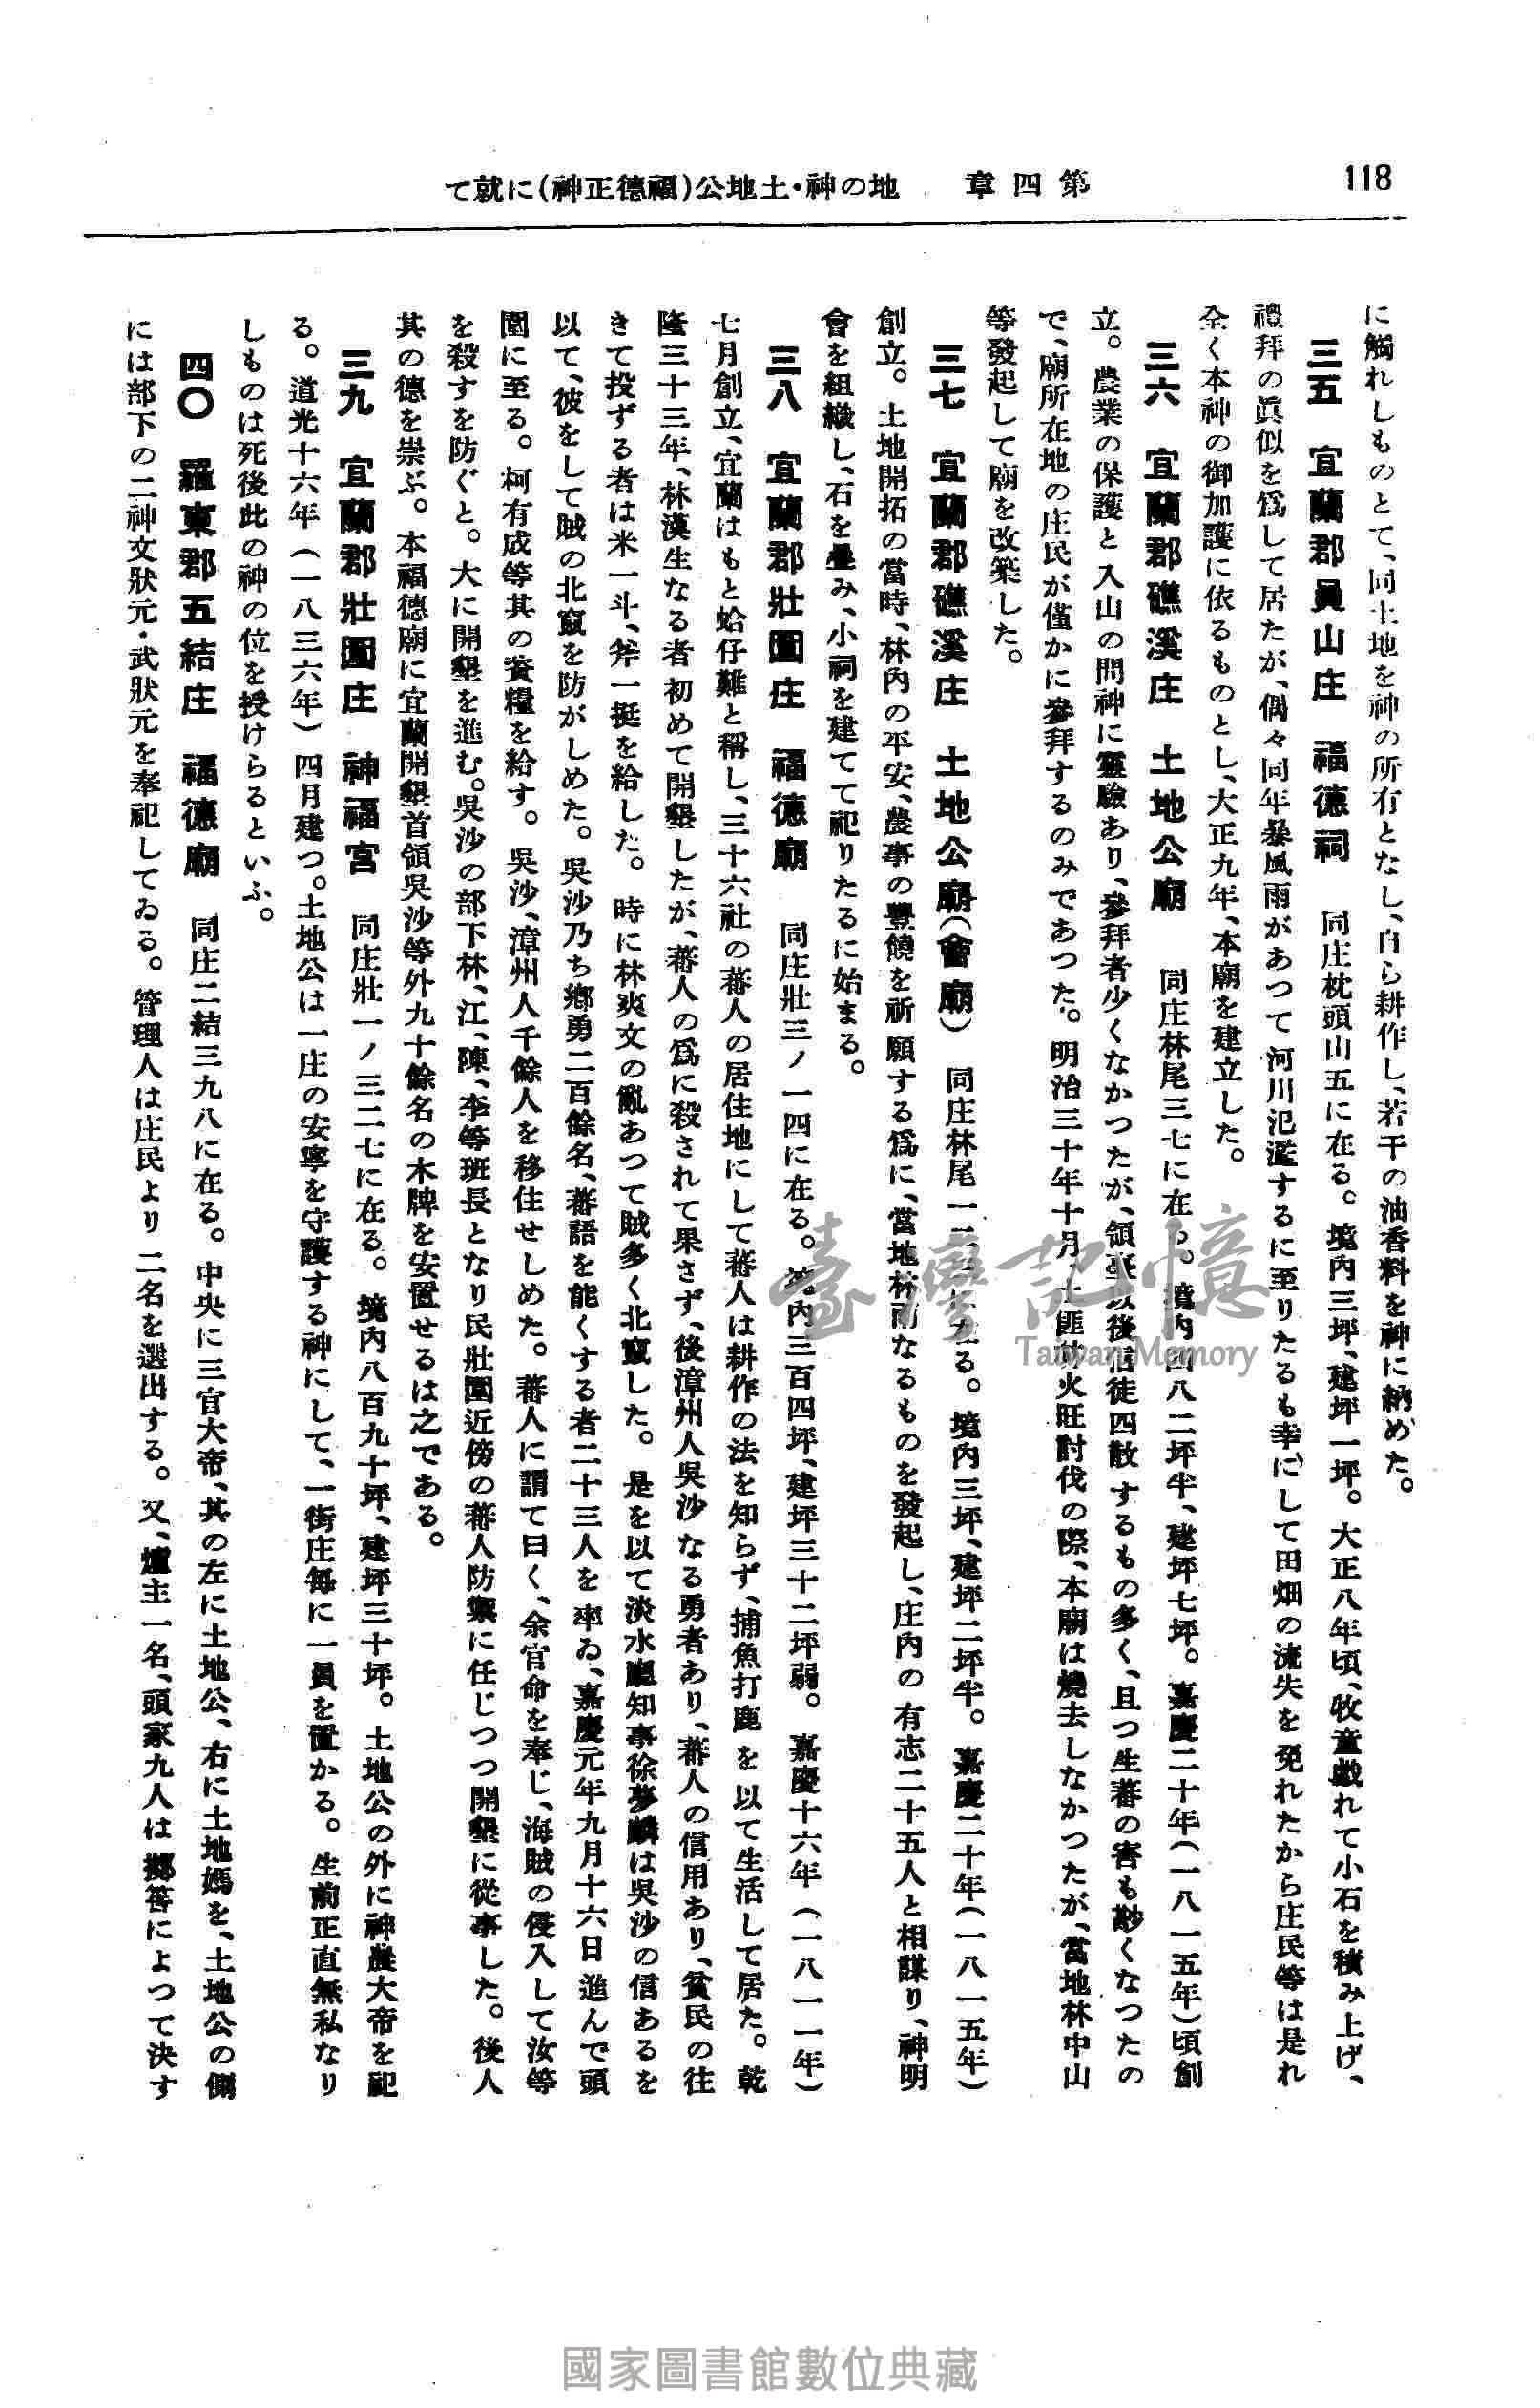 118
第四章 地の神・土地公(福德正神)に就て
に觸れしものとて、同土地を神の所有となし、自ら耕作し、若干の油香料を神に納めた。
三五 宜蘭郡員山庄 福德祠 同庄枕頭山五に在る。境內三坪、建坪一坪。大正八年頃、牧童戲れて小石を積み上げ、
禮拜の眞似を爲して居たが、偶々同年暴風雨があつて河川氾濫するに至りたるも幸にして田畑の流失を免れたから庄民等は是れ
全く本神の御加護に依るものとし、大正九年、本廟を建立した。
三六 宜蘭郡礁溪庄 土地公廟 同庄林尾三七に在る。境內四八二坪半、建坪七坪。嘉慶二十年(一八一五年)頃創
立。農業の保護と入山の問神に靈驗あり、參拜者少くなかつたが、領臺以後信徒四散するもの多く、且つ生蕃の害も尠くなつたの
で、廟所在地の庄民が僅かに參拜するのみであつた。明治三十年十月、土匪放火旺討伐の際、本廟は燒去しなかつたが、當地林中山
等發起して廟を改築した。
三七 宜蘭郡礁溪庄 土地公廟(會廟) 同庄林尾一三 在る。境內三坪、建坪二坪半。嘉慶二十年(一八一五年)
創立。土地開拓の當時、林內の平安、農事の豐饒を祈願する爲に、當地林 なるものを發起し、庄內の有志二十五人と相謀り、神明
會を組織し、石を疊み、小祠を建てて祀りたるに始まる。
三八 宜蘭郡壯圍庄 福德廟 同庄壯三ノ一四に在る。境內三百四坪、建坪三十二坪弱。嘉慶十六年(一八一一年)
七月創立、宜蘭はもと蛤仔難と稱し、三十六社の蕃人の居住地にして蕃人は耕作の法を知らず、捕魚打鹿を以て生活して居た。乾
隆三十三年、林漢生なる者初めて開墾したが、蕃人の爲に殺されて果さず、後漳州人吳沙なる勇者あり、蕃人の信用あり、貧民の往
きて投ずる者は米一斗、斧一挺を給した。時に林爽文の亂あつて賊多く北竄した。是を以て淡水廳知事徐夢麟は吳沙の信あるを
以て、彼をして賊の北竄を防がしめた。吳沙乃ち鄕勇二百餘名、蕃語を能くする者二十三人を率ゐ、嘉慶元年九月十六日進んで頭
圍に至る。柯有成等其の資糧を給す。吳沙、漳州人千餘人を移住せしめた。蕃人に謂て曰く、余官命を奉じ、海賊の侵入して汝等
を殺すを防ぐと。大に開墾を進む。吳沙の部下林、江、陳、李等班長となり民壯圍近傍の蕃人防禦に任じつつ開墾に從事した。後人
其の德を崇ぶ。本福德廟に宜蘭開墾首領吳沙等外九十餘名の木牌を安置せるは之である。
三九 宜蘭郡壯圍庄 神福宮 同庄壯一ノ三二七に在る。境內八百九十坪、建坪三十坪。土地公の外に神農大帝を祀
る。道光十六年(一八三六年)四月建つ。土地公は一庄の安寧を守護する神にして、一街庄每に一員を置かる。生前正直無私なり
しものは死後此の神の位を授けらるといふ。
四〇 羅東郡五結庄 福德廟 同庄二結三九八に在る。中央に三官大帝、其の左に土地公、右に土地媽を、土地公の側
には部下の二神文狀元・武狀元を奉祀してゐる。管理人は庄民より二名を選出する。又、爐主一名、頭家九人は擲筶によつて決す
臺灣記憶
Taiwan Memory
國家圖書館數位典藏